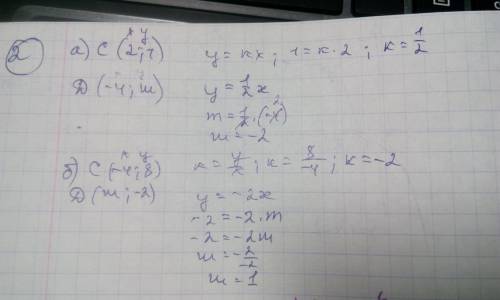 2
x y
а) С (2; 1) y = kx; 1 = k·2; k = 1/2
Д (-4; m) y = 1/2 x
m = 1/2 · (-4) 2
m = -2
x y
б) С (-4; 8) k = y/x; k = 8/-4; k = -2
Д (m; -2) y = -2x
-2 = -2·m
-2 = -2m
m = -2/-2
m = 1